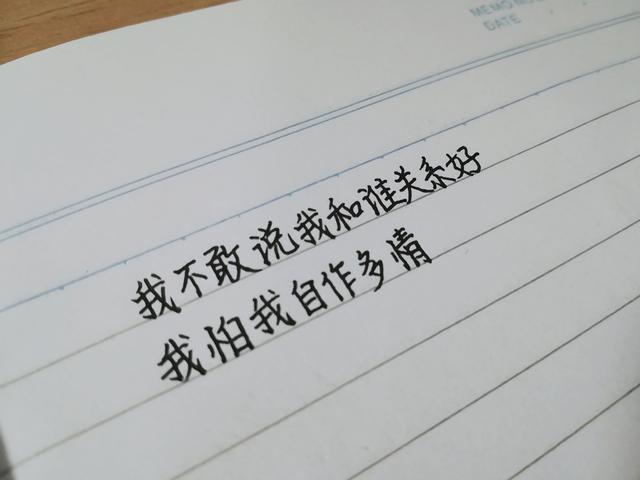 DATE
我不敢说我和谁关系好
我怕我自作多情